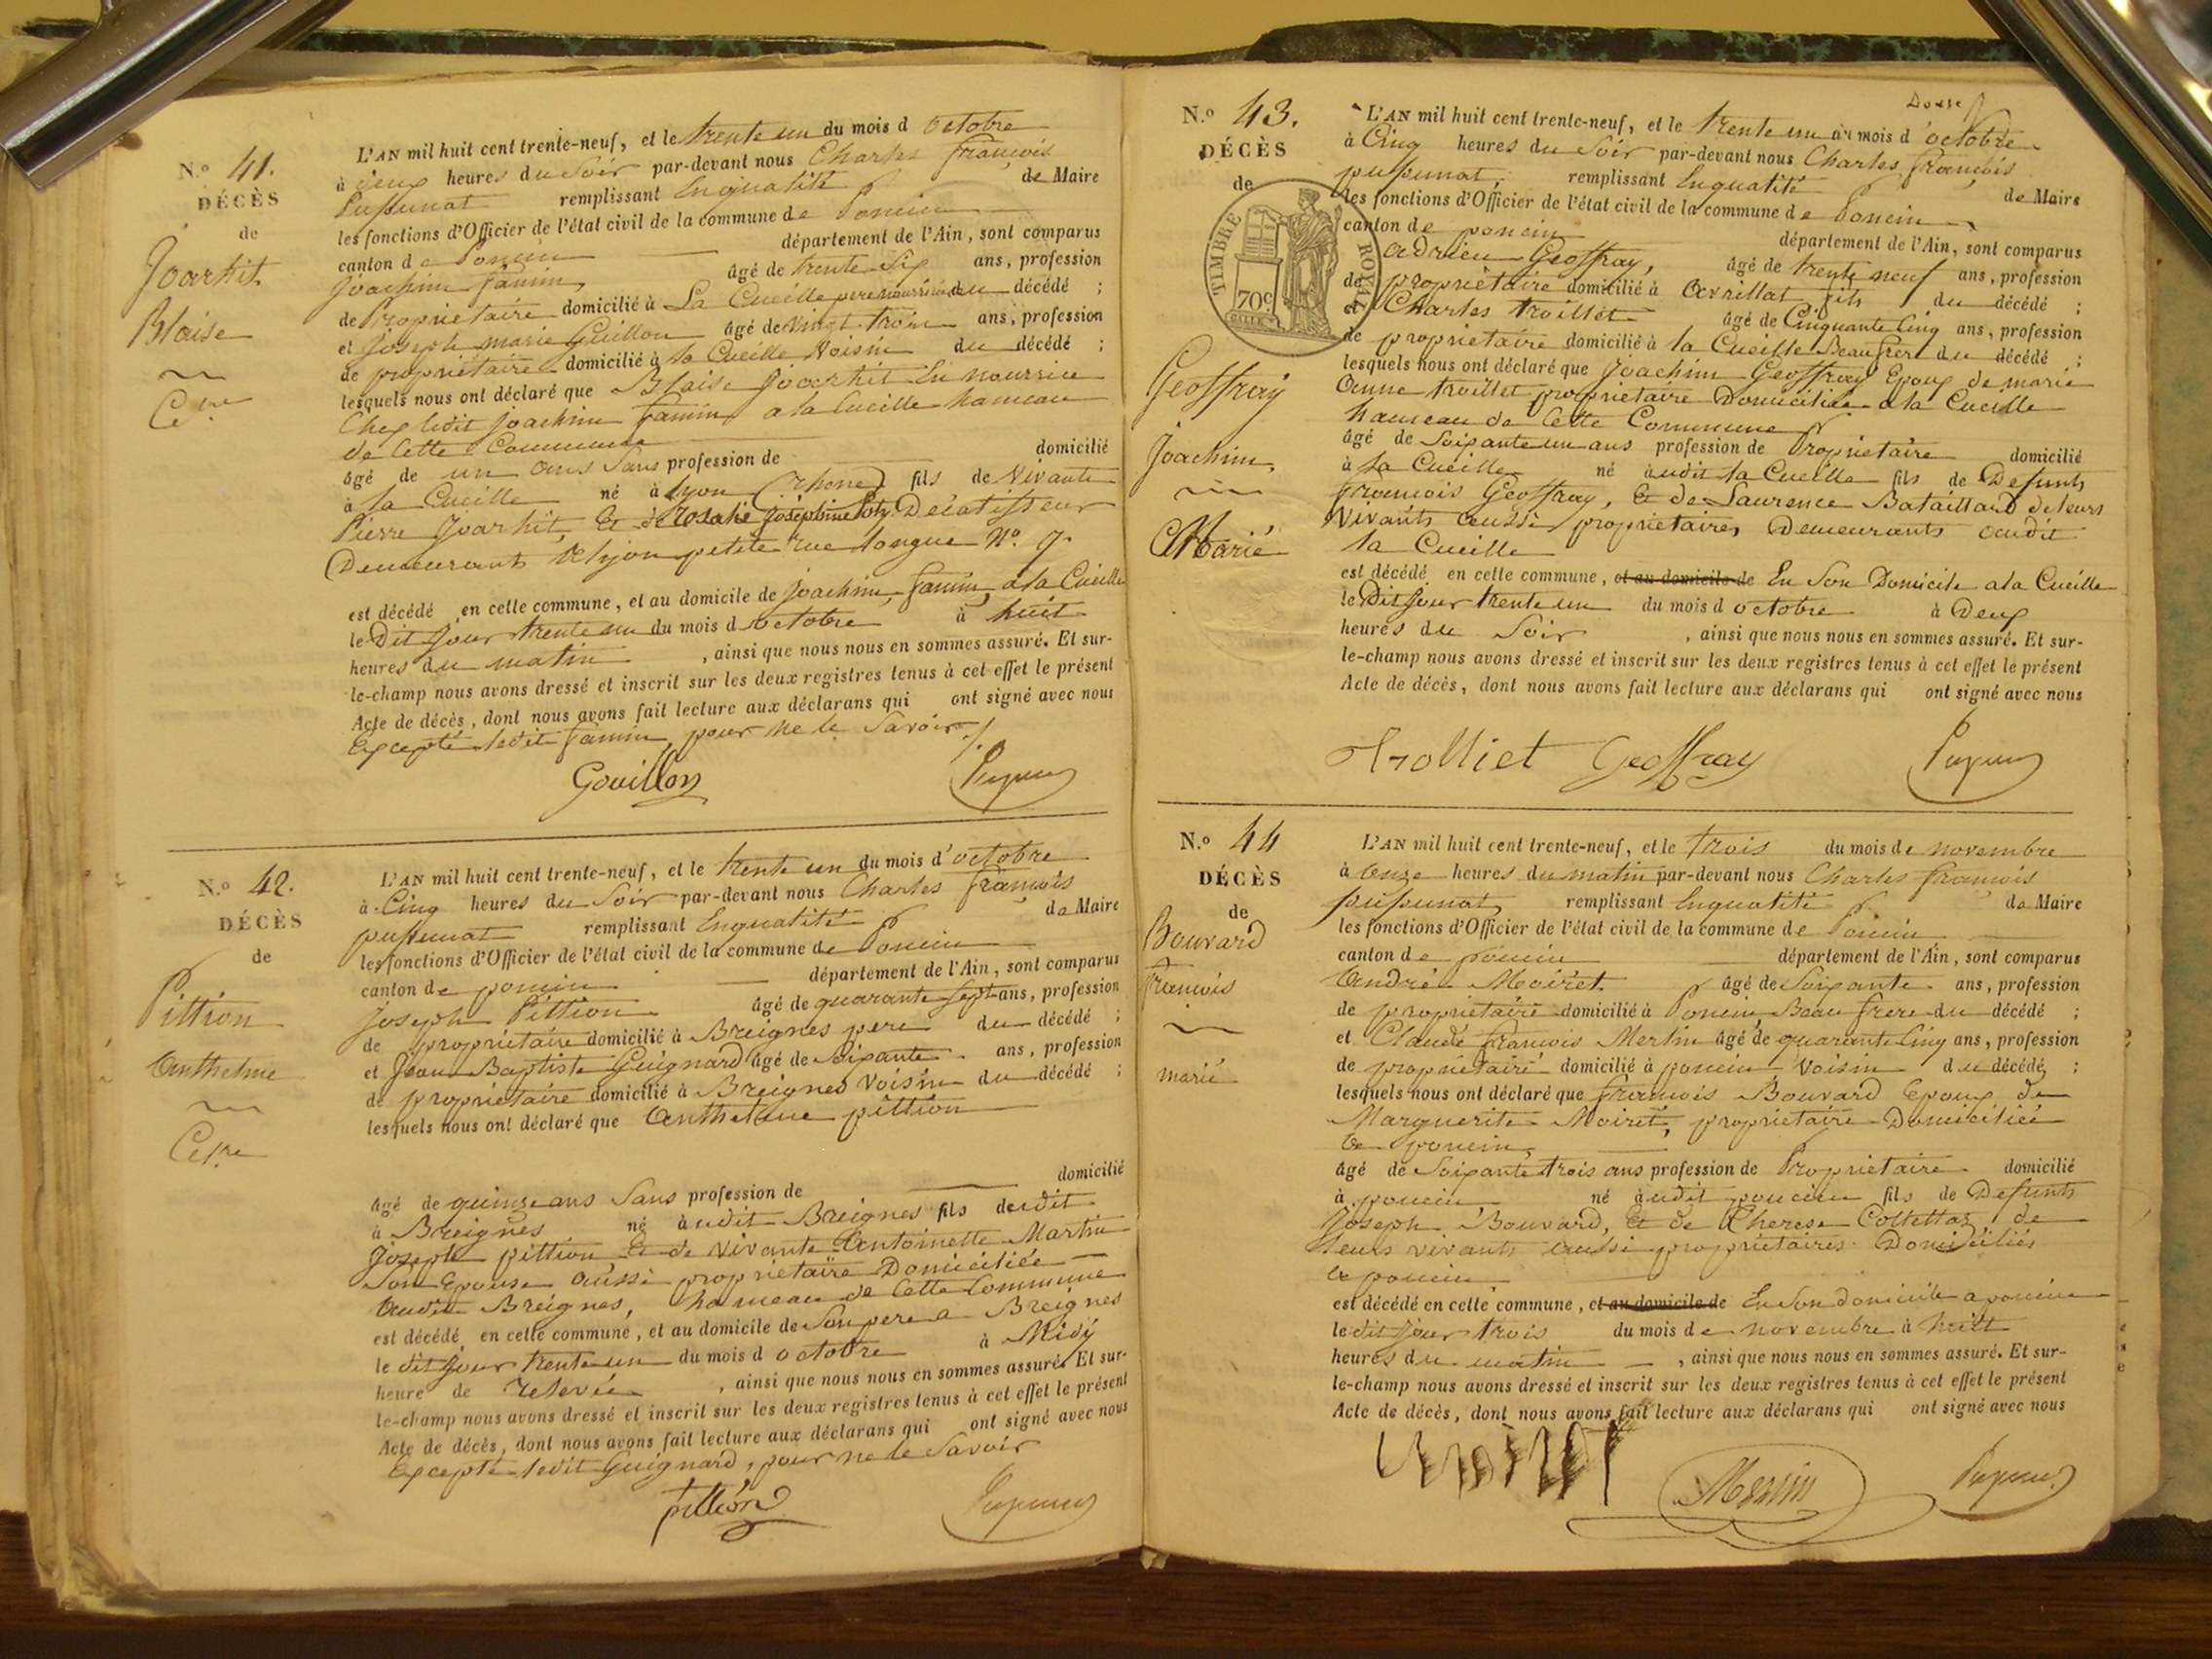 N.º 41.
DÉCÈS
de
Joarhit
Blaise
Cre
L'AN mil huit cent trente-neuf, et le trente un du mois d octobre
à deux heures du Soir par-devant nous Charles françois
Pupunat remplissant Enqualité de Maire
les fonctions d'Officier de l'état civil de la commune de Poncin
canton de Poncin département de l'Ain, sont comparus
Joachim famin, âgé de trente Six ans, profession
de Propriétaire domicilié à La Cueille pere nourricier du décédé ;
et Joseph marie Guillon âgé de Vingt trois ans, profession
de propriétaire domicilié à la Cueille Voisin du décédé ;
lesquels nous ont déclaré que Blaise Joarhit En nourrice
Chez ledit Joachim famin a la Cueille hameau
de Cette Commune
âgé de un ans Sans profession de domicilié
à la Cueille né à Lyon (Rhone) fils de Vivants
Pierre Joarhit, Et de Rosalie Joséphine Décatisseur
Demeurants a Lyon petite rue longue Nº. 7.
est décédé en cette commune, et au domicile de Joachim famin, a la Cueille
le Dit Jour trente un du mois d octobre à huit
heures du matin , ainsi que nous nous en sommes assuré. Et sur-
le-champ nous avons dressé et inscrit sur les deux registres tenus à cet effet le présent
Acte de décès, dont nous avons fait lecture aux déclarans qui ont signé avec nous
Excepté ledit famin pour ne le Savoir ./.
Gouillon Pupunat
N.º 42.
DÉCÈS
de
Pittion
Anthelme
Cre
L'AN mil huit cent trente-neuf, et le trente un du mois d'octobre
à Cinq heures du Soir par-devant nous Charles françois
pupunat remplissant Enqualité de Maire
les fonctions d'Officier de l'état civil de la commune de Poncin
canton de poncin département de l'Ain, sont comparus
Joseph Pittion âgé de quarante Sept ans, profession
de propriétaire domicilié à Breignes pere du décédé ;
et Jean Baptiste Guignard âgé de Soixante ans, profession
de propriétaire domicilié à Breignes Voisin du décédé ;
lesquels nous ont déclaré que Anthelme pittion
âgé de quinze ans Sans profession de domicilié
à Breignes né audit Breignes fils dudit
Joseph pittion Et de Vivante Antoinette Martin
Son Epouse aussi propriétaire Domiciliée
audit Breignes, hameau de Cette Commune
est décédé en cette commune, et au domicile de Son pere a Breignes
le dit Jour trente un du mois d octobre à Midy
heure de relevée , ainsi que nous nous en sommes assuré. Et sur-
le-champ nous avons dressé et inscrit sur les deux registres tenus à cet effet le présent
Acte de décès, dont nous avons fait lecture aux déclarans qui ont signé avec nous
Excepté ledit Guignard, pour ne le Savoir
pittion Pupunat
N.º 43.
DÉCÈS
de
TIMBRE ROYAL
70c
Geoffray
Joachim,
Marié
L'AN mil huit cent trente-neuf, et le trente un du mois d'octobre
à Cinq heures du Soir par-devant nous Charles françois
pupunat, remplissant Enqualité de Maire
les fonctions d'Officier de l'état civil de la commune de Poncin
canton de poncin département de l'Ain, sont comparus
adrien Geoffray, âgé de trente neuf ans, profession
de propriétaire domicilié à fils du décédé ;
et Charles trolliet âgé de Cinquante Cinq ans, profession
de propriétaire domicilié à la Cueille Beaufrere du décédé ;
lesquels nous ont déclaré que Joachim Geoffray Epoux de marie
anne trolliet propriétaire Domiciliée a la Cueille
hameau de Cette Commune
âgé de Soixante un ans profession de Propriétaire domicilié
à la Cueille né audit la Cueille fils de Defunts
françois Geoffray, Et de Laurence Bataillard de leurs
Vivants aussi propriétaires Demeurants audit
la Cueille
est décédé en cette commune, et au domicile de En Son Domicile a la Cueille
le Dit Jour trente un du mois d octobre à Deux
heures du Soir , ainsi que nous nous en sommes assuré. Et sur-
le-champ nous avons dressé et inscrit sur les deux registres tenus à cet effet le présent
Acte de décès, dont nous avons fait lecture aux déclarans qui ont signé avec nous
Trolliet Geoffray Pupunat
N.º 44
DÉCÈS
de
Bouvard
françois
marié
L'AN mil huit cent trente-neuf, et le trois du mois de novembre
à onze heures du matin par-devant nous Charles françois
pupunat remplissant Enqualité de Maire
les fonctions d'Officier de l'état civil de la commune de Poncin
canton de poncin département de l'Ain, sont comparus
André Moiret âgé de Soixante ans, profession
de propriétaire domicilié à Poncin, Beau frere du décédé ;
et Claude françois Merlin âgé de quarante Cinq ans, profession
de propriétaire domicilié à poncin Voisin du décédé ;
lesquels nous ont déclaré que françois Bouvard Epoux de
Marguerite Moiret, propriétaire Domiciliée
a poncin,
âgé de Soixante trois ans profession de Propriétaire domicilié
à poncin né audit poncin fils de Defunts
Joseph Bouvard, Et de Therese Collettaz, de
leurs vivants aussi propriétaires Domiciliés
a poncin
est décédé en cette commune, et au domicile de En Son domicile a poncin
le dit Jour trois du mois de novembre à huit
heures du matin , ainsi que nous nous en sommes assuré. Et sur-
le-champ nous avons dressé et inscrit sur les deux registres tenus à cet effet le présent
Acte de décès, dont nous avons fait lecture aux déclarans qui ont signé avec nous
moiret Merlin Pupunat